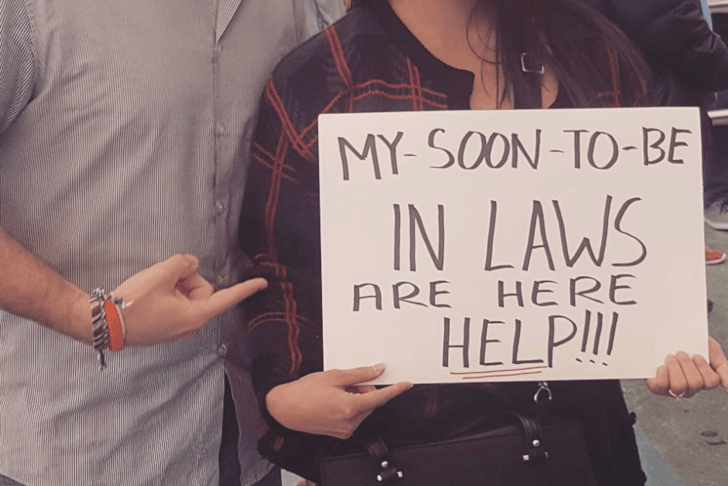 MY-SOON-TO-BE
IN LAWS
ARE HERE
HELP!!!